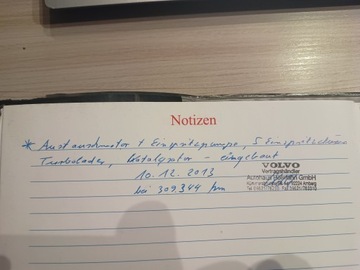 Notizen
* Austauschmotor + Einspritzpumpe, 5 Einspritzdüsen
Turbolader, Katalysator - eingebaut
10.12.2013
VOLVO
Vertragshändler
bei 309344 km